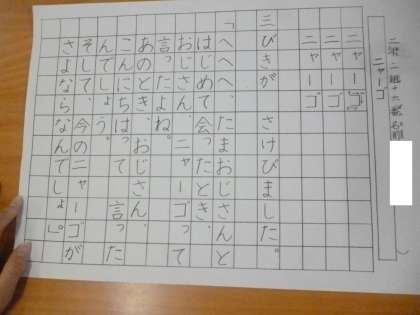 二年二組十六番名前
ニャーゴ
ニャーゴ
ニャーゴ
ニャーゴ
三びきがさけびました。
「へへへ、たまおじさんと
はじめて会ったとき、
おじさん、ニャーゴって
言ったよね。
あのとき、おじさん、
こんにちは、って言った
んでしょう。
そして今のニャーゴが
さよなら、なんでしょ。」